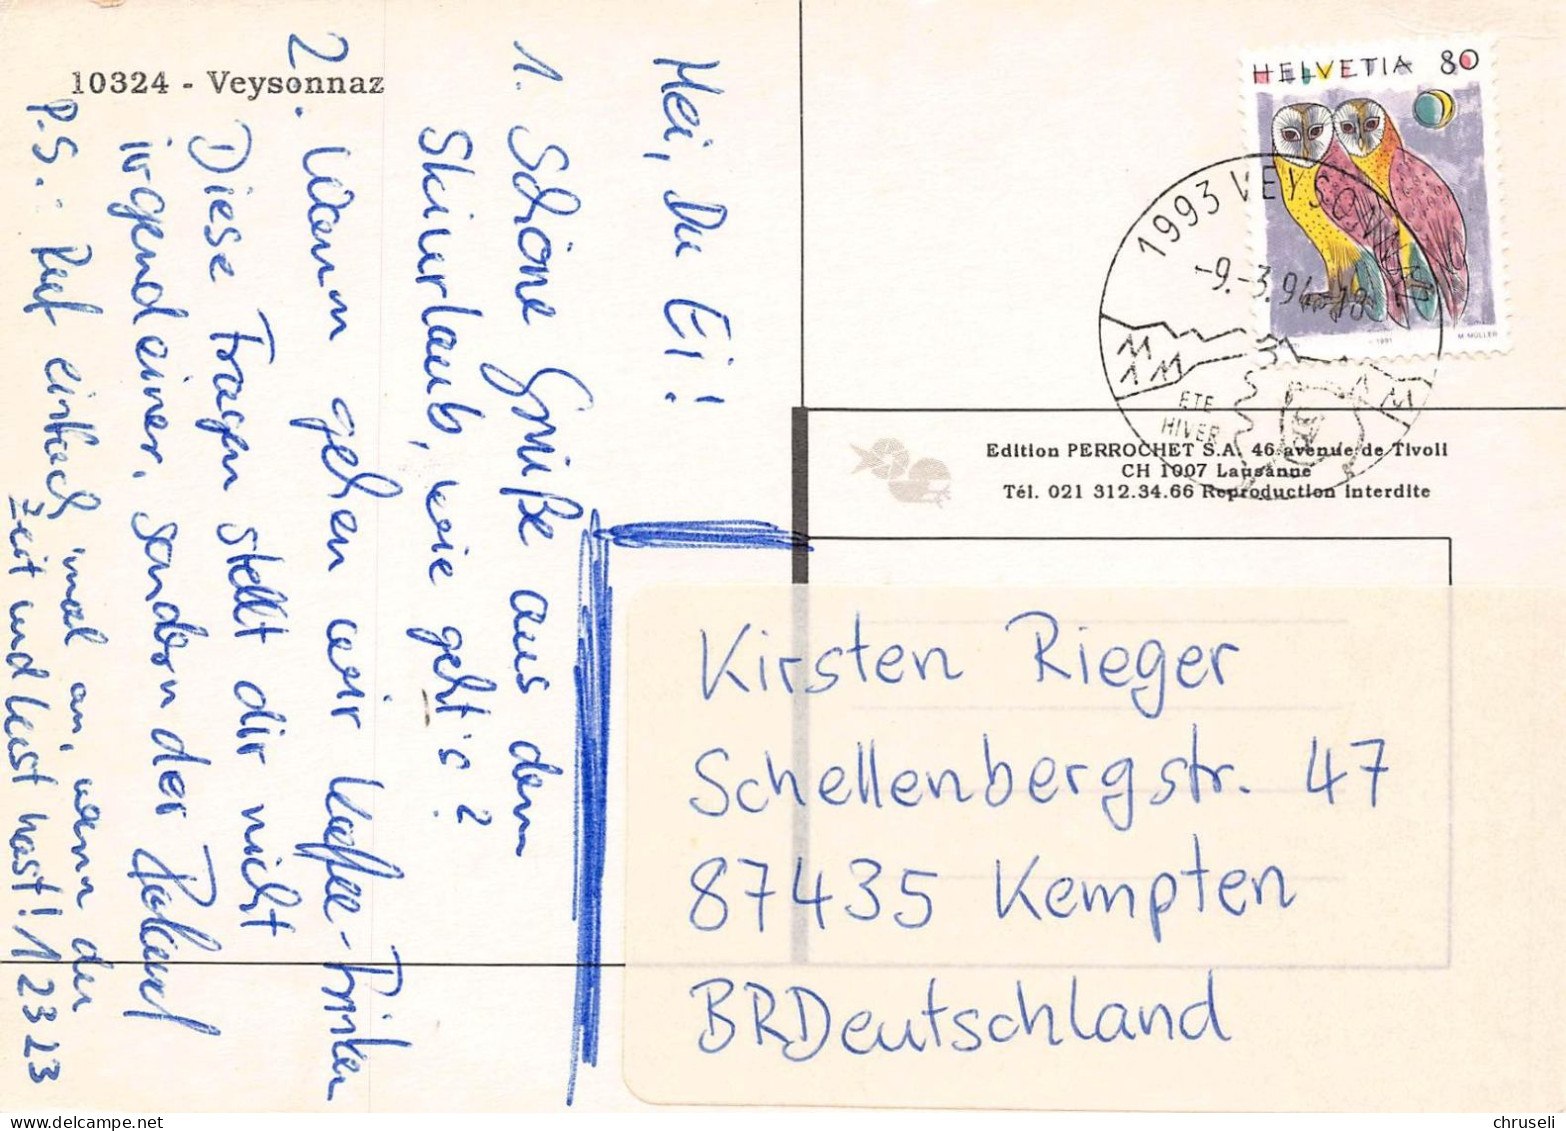 10324 - Veysonnaz
Hei, Du Ei!
1. Schöne Grüße aus dem
Skiurlaub, wie geht's?
2. Wann gehen wir Kaffee-Trinken
Diese Fragen stellt dir nicht
irgendeiner, sondern der
P.S.: Ruf einfach 'mal an, wenn du
Zeit und Lust hast! 12323
HELVETIA 80
1991
M. MÜLLER
1993 VEYSONNAZ
-9.-3.94-18
ETE
HIVER
Edition PERROCHET S.A. 46 avenue de Tivoli
CH 1007 Lausanne
Tél. 021 312.34.66 Reproduction interdite
Kirsten Rieger
Schellenbergstr. 47
87435 Kempten
BRDeutschland
chruseli